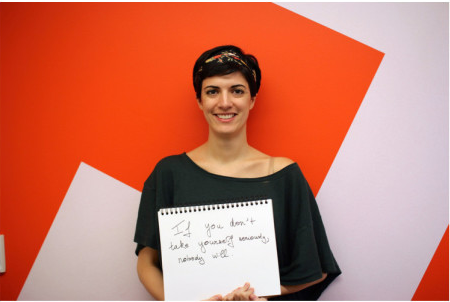 If you don't
take yourself seriously,
nobody will.